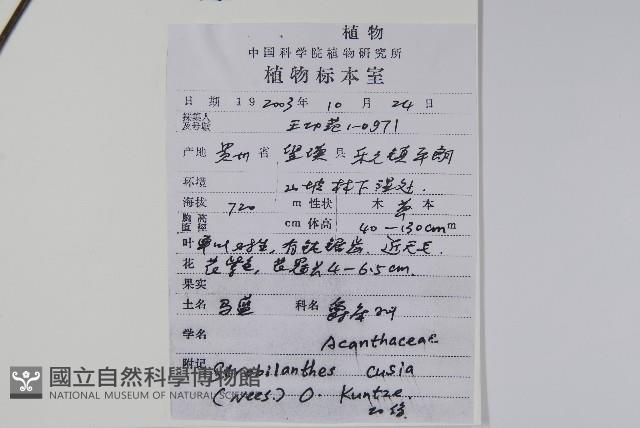 植物
中国科学院植物研究所
植物标本室
日期 19 2003年 10月 24日
采集人及号数 王功范 1-0971
产地 贵州省 望谟县 乐元镇平朗
环境 山坡林下湿处.
海拔 720 m 性状 木 草 本
胸高直径 cm 体高 40-130cm m
叶 单叶对生, 有钝锯齿. 近无毛.
花 花紫色, 花冠长4-6.5cm.
果实
土名 马蓝 科名 爵床科
学名 Acanthaceae
附记 Strobilanthes cusia
(Nees.) O. Kuntze.
國立自然科學博物館
NATIONAL MUSEUM OF NATURAL SCIENCE